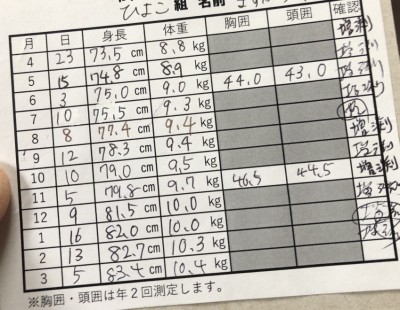 ひよこ 組 名前
月 日 身長 体重 胸囲 頭囲 確認
4 23 73.5 cm 8.8 kg
5 15 74.8 cm 8.9 kg
6 3 75.0 cm 9.0 kg 44.0 43.0
7 10 75.5 cm 9.3 kg
8 8 77.4 cm 9.4 kg
9 12 78.3 cm 9.4 kg
10 10 79.0 cm 9.5 kg
11 5 79.8 cm 9.7 kg 46.5 44.5
12 9 81.5 cm 10.0 kg
1 16 82.0 cm 10.0 kg
2 13 82.7 cm 10.3 kg
3 5 83.4 cm 10.4 kg
※胸囲・頭囲は年2回測定します。